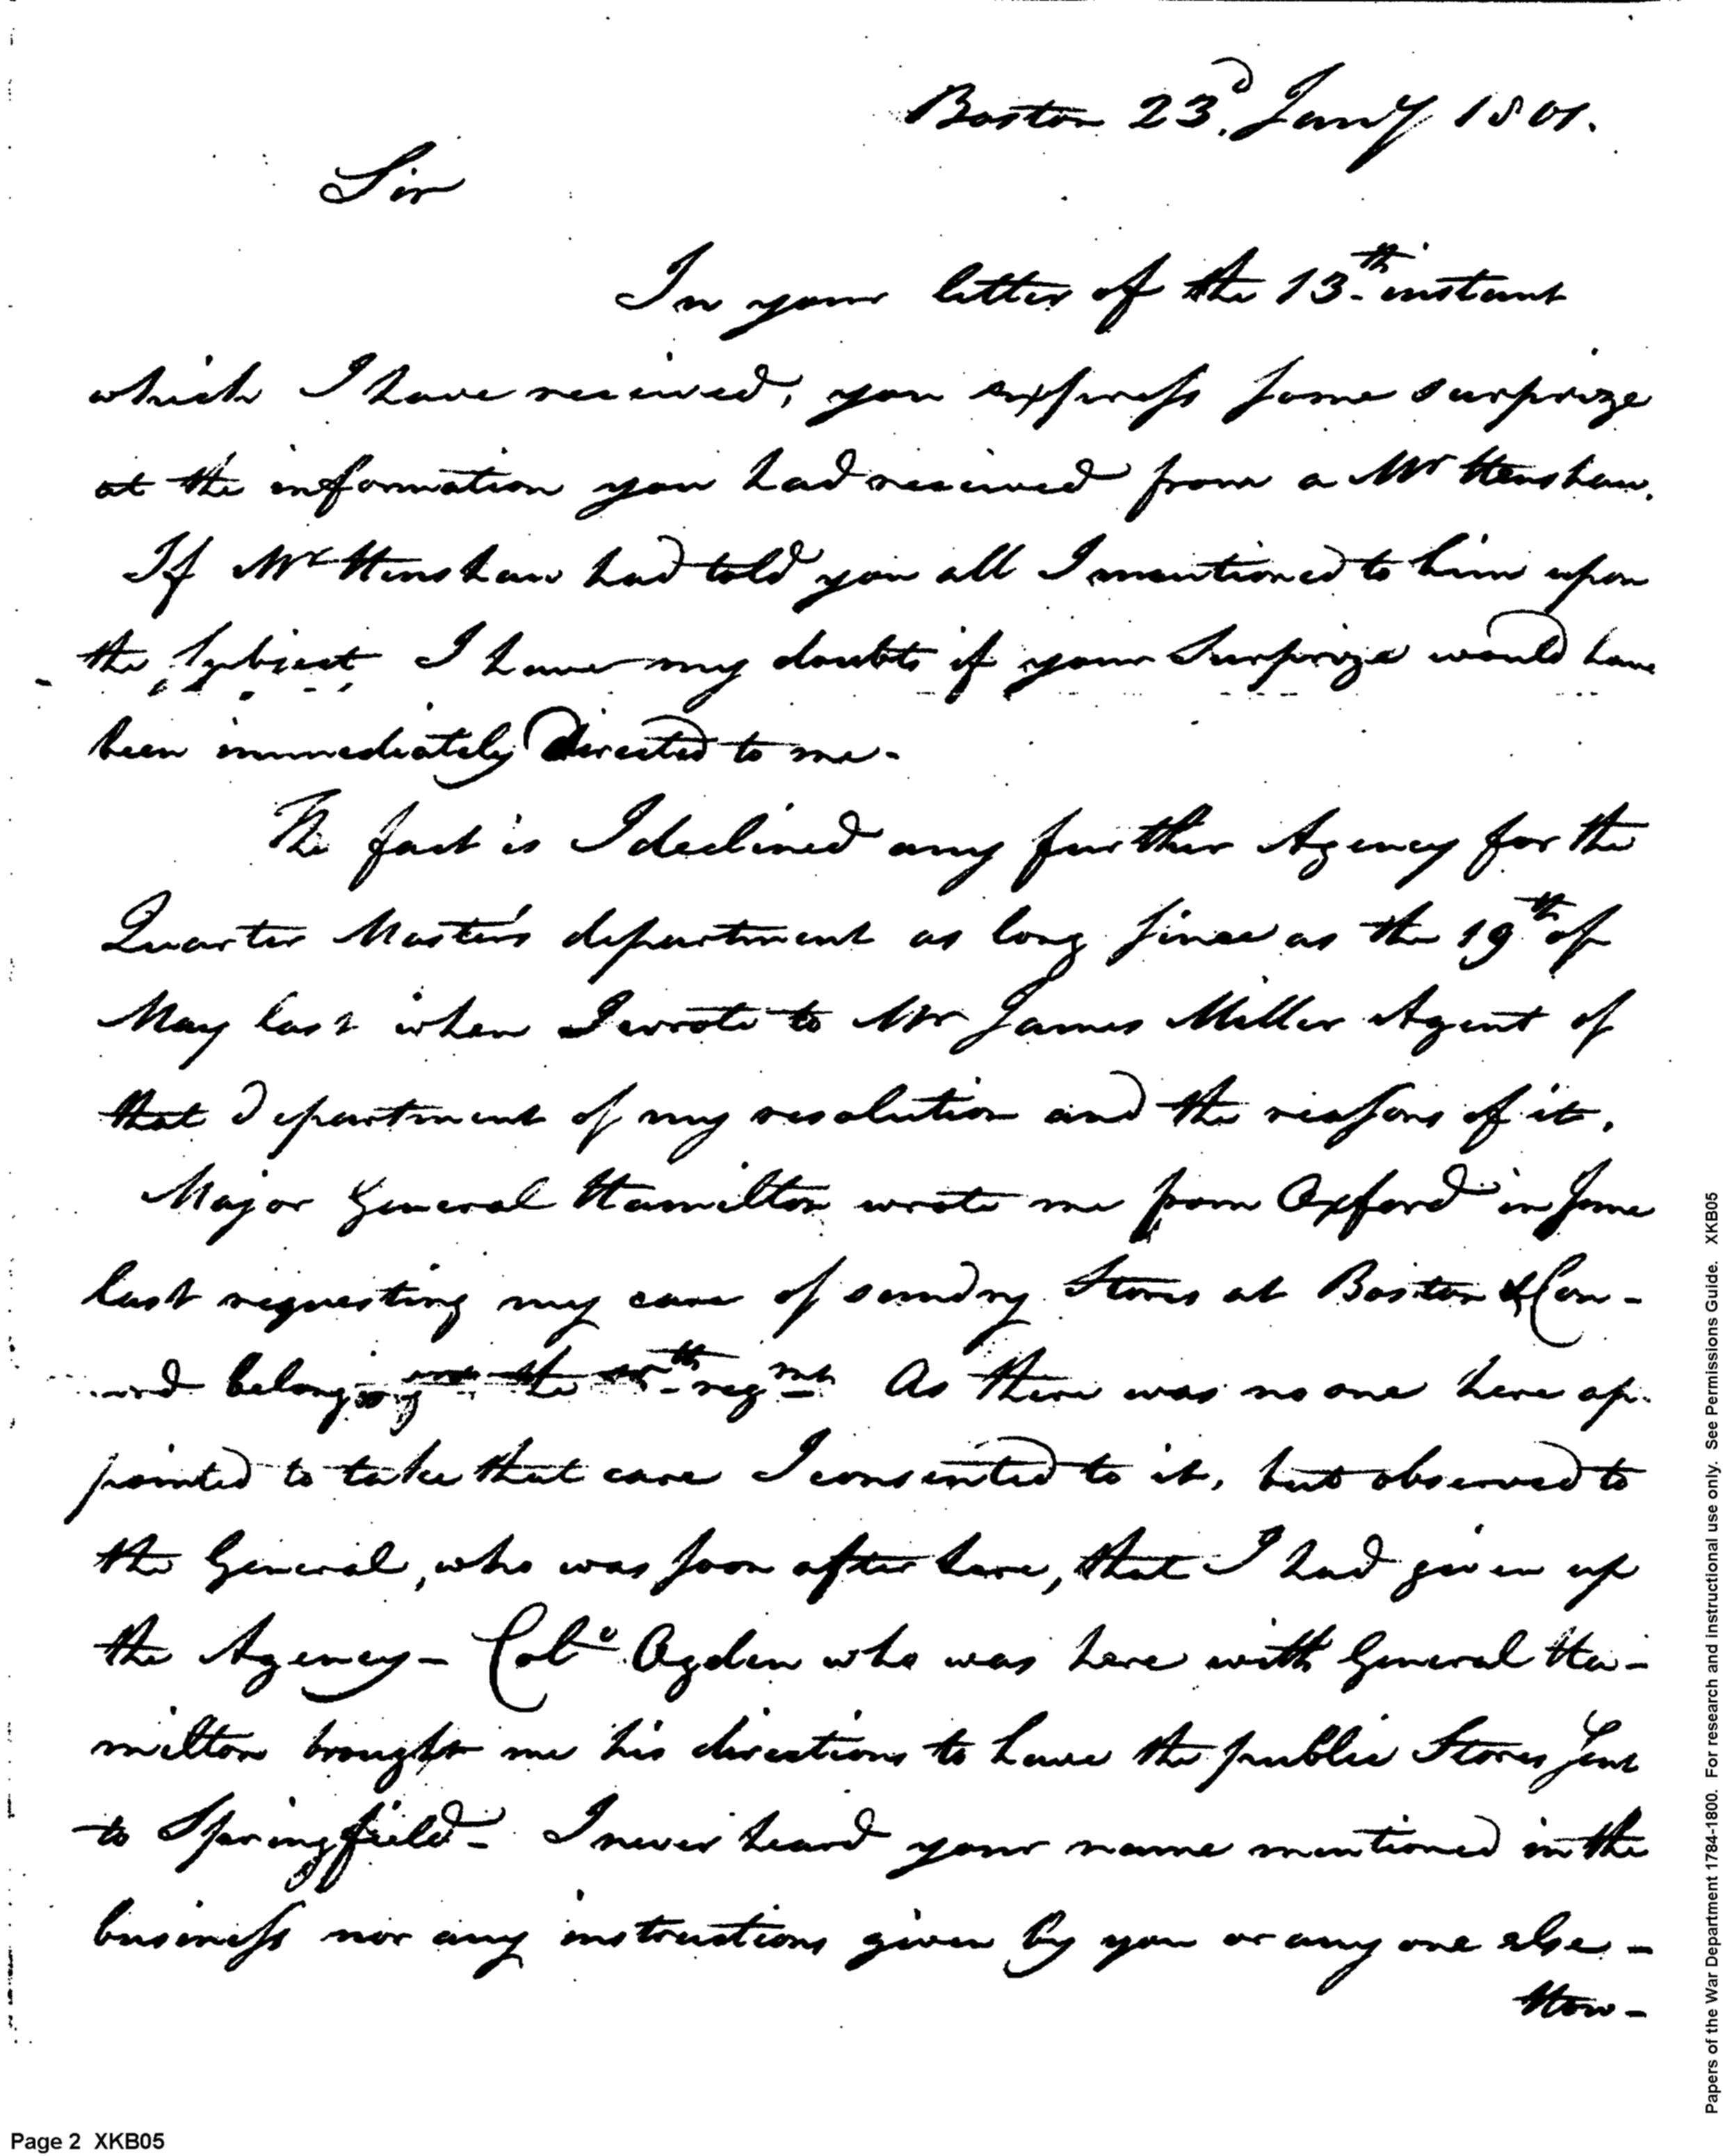 Boston 23.d Jany 1801.
Sir
In your letter of the 13th instant
which I have received, you express some surprize
at the information you had received from a Mr Henshaw.
If Mr Henshaw had told you all I mentioned to him upon
the subject I have my doubts if your surprize would have
been immediately directed to me-
The fact is I declined any further Agency for the
Quarter Master's department as long since as the 19th of
May last when I wrote to Mr James Miller Agent of
that department of my resolution and the reasons of it.
Major General Hamilton wrote me from Oxford in June
last requesting my care of sundry Stores at Boston & Con-
cord belonging the regmt As there was no one here ap-
pointed to take that care I consented to it, but observed to
the General, who was soon after here, that I had given up
the Agency- Colo Ogden who was here with General Ha-
milton brought me his directions to have the public Stores sent
to Springfield- I never heard your name mentioned in the
business nor any instructions given by you or any one else-
How-
Page 2 XKB05
Papers of the War Department 1784-1800. For research and instructional use only. See Permissions Guide. XKB05